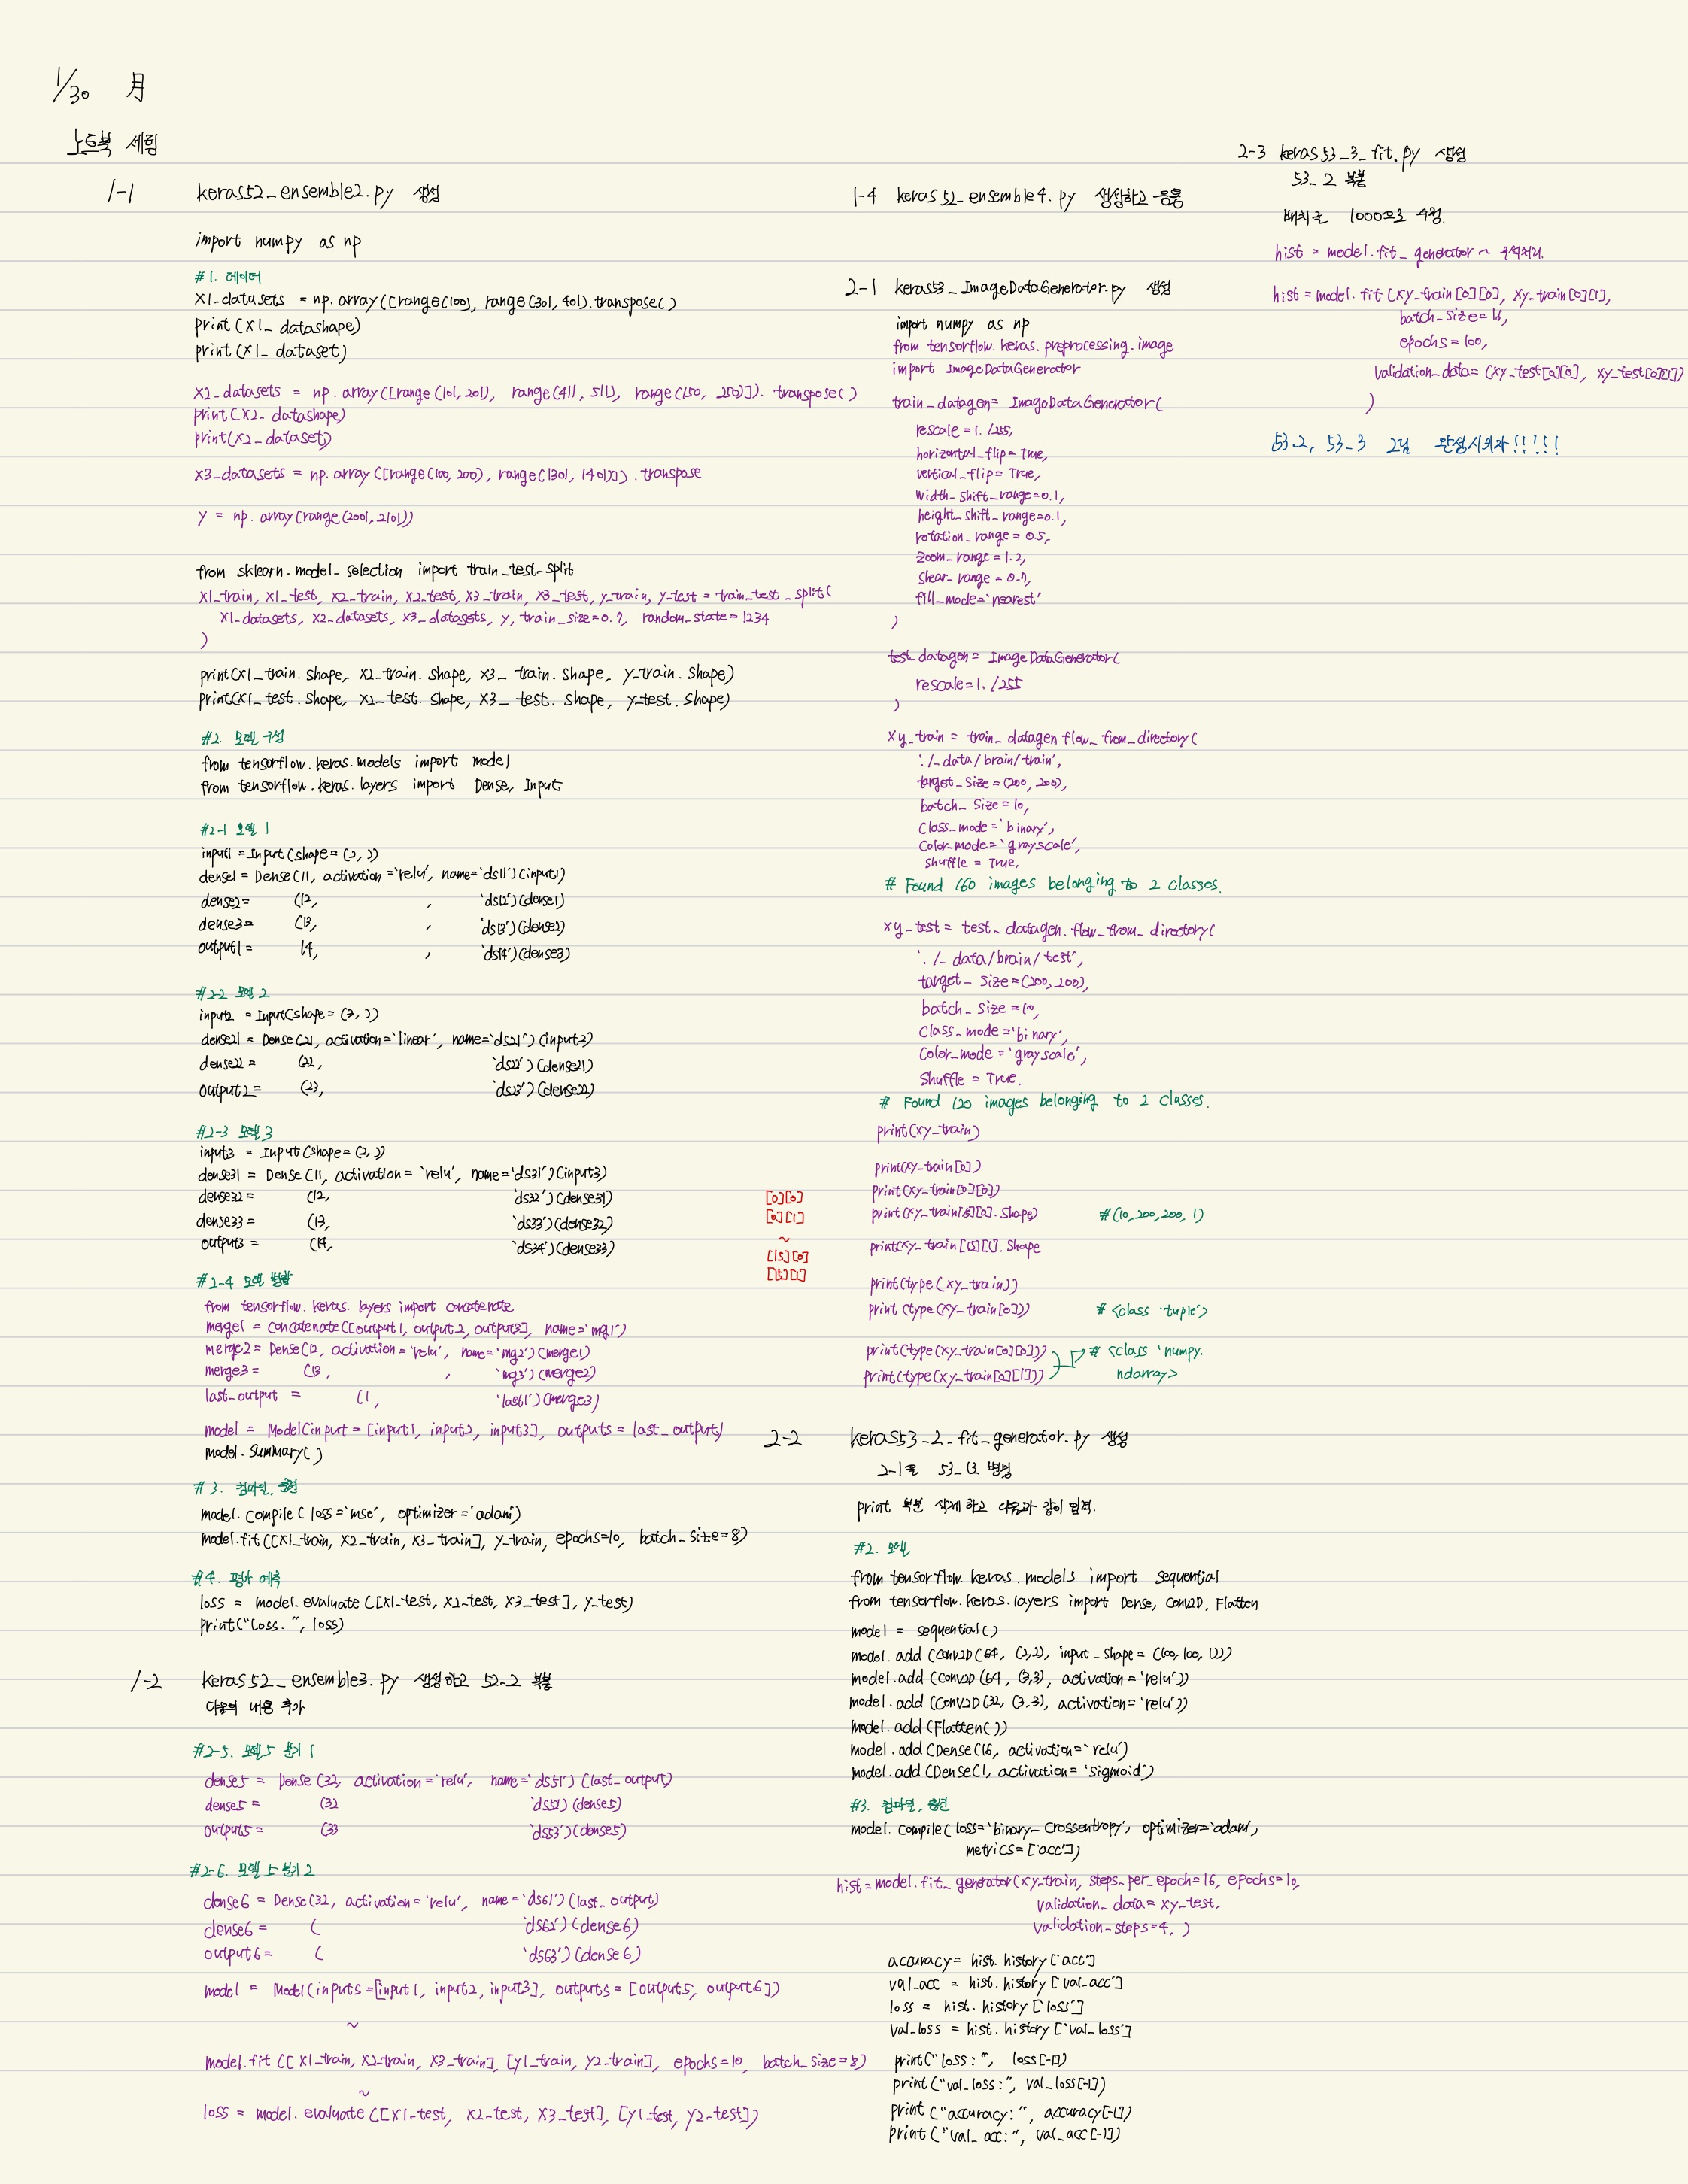 1/30 月
노트북 세팅
1-1 keras52_ensemble2.py 생성
import numpy as np
#1. 데이터
x1_datasets = np.array([range(100), range(301, 401).transpose()
print(x1_datashape)
print(x1_dataset)
x2_datasets = np.array([range(101, 201), range(411, 511), range(150, 250)]).transpose()
print(x2_datashape)
print(x2_dataset)
x3_datasets = np.array([range(100, 200), range(1301, 1401)]).transpose
y = np.array(range(2001, 2101))
from sklearn.model_selection import train_test_split
x1_train, x1_test, x2_train, x2_test, x3_train, x3_test, y_train, y_test = train_test_split(
x1_datasets, x2_datasets, x3_datasets, y, train_size=0.7, random_state=1234
)
print(x1_train.shape, x2_train.shape, x3_train.shape, y_train.shape)
print(x1_test.shape, x2_test.shape, x3_test.shape, y_test.shape)
#2. 모델 구성
from tensorflow.keras.models import model
from tensorflow.keras.layers import Dense, Input
#2-1 모델 1
input1 = Input(shape=(2, ))
dense1 = Dense(11, activation='relu', name='ds11')(input1)
dense2= (12, , 'ds12')(dense1)
dense3= (13, , 'ds13')(dense2)
output1= 14, , 'ds14')(dense3)
#2-2 모델 2
input2 = Input(shape=(3, ))
dense21 = Dense(21, activation='linear', name='ds21')(input2)
dense22 = (22, 'ds22')(dense21)
output2= (23, 'ds23')(dense22)
#2-3 모델 3
input3 = Input(shape=(2, ))
dense31 = Dense(11, activation='relu', name='ds31')(input3)
dense32= (12, 'ds32')(dense31)
dense33= (13, 'ds33')(dense32)
output3= (14, 'ds34')(dense33)
#2-4 모델 병합
from tensorflow.keras.layers import concatenate
merge1 = concatenate([output1, output2, output3], name='mg1')
merge2= Dense(12, activation='relu', name='mg2')(merge1)
merge3= (13, , 'mg3')(merge2)
last_output = (1, 'last1')(merge3)
model = Model(input=[input1, input2, input3], outputs = last_output)
model.summary()
#3. 컴파일, 훈련
model.compile(loss='mse', optimizer='adam')
model.fit([x1_train, x2_train, x3_train], y_train, epochs=10, batch_size=8)
#4. 평가 예측
loss = model.evaluate([x1_test, x2_test, x3_test], y_test)
print("Loss.", loss)
1-2 keras52_ensemble3.py 생성하고 52-2 복붙
다음의 내용 추가
#2-5. 모델5 분기 1
dense5 = Dense(32, activation='relu', name='ds51')(last_output)
dense5 = (32 'ds52)(dense5)
output5= (33 'ds53')(dense5)
#2-6. 모델 5 분기 2
dense6 = Dense(32, activation='relu', name='ds61')(last_output)
dense6 = ( 'ds62')(dense6)
output6= ( 'ds63')(dense6)
model = Model(inputs=[input1, input2, input3], outputs=[output5, output6])
~
model.fit([x1_train, x2_train, x3_train], [y1_train, y2_train], epochs=10, batch_size=8)
~
loss = model.evaluate([x1_test, x2_test, x3_test], [y1_test, y2_test])
1-4 keras52_ensemble4.py 생성하고 응용
2-1 keras53_ImageDataGenerator.py 생성
import numpy as np
from tensorflow.keras.preprocessing.image
import ImageDataGenerator
train_datagen= ImageDataGenerator(
rescale=1./255,
horizontal_flip=True,
vertical_flip=True,
width_shift_range=0.1,
height_shift_range=0.1,
rotation_range=0.5,
zoom_range=1.2,
shear_range=0.7,
fill_mode='nearest'
)
test_datagen= ImageDataGenerator(
rescale=1./255
)
xy_train = train_datagen flow_from_directory(
'./_data/brain/train',
target_size=(200, 200),
batch_size=10,
class_mode='binary',
color_mode='grayscale',
shuffle=True,
# Found 160 images belonging to 2 classes.
xy_test = test_datagen.flow_from_directory(
'./_data/brain/test',
target_size=(200, 200),
batch_size=10,
class_mode='binary',
color_mode='grayscale',
shuffle=True.
# Found 120 images belonging to 2 classes.
print(xy_train)
print(xy_train[0])
print(xy_train[0][0])
print(xy_train[15][0].shape) #(10, 200, 200, 1)
print(xy_train[15][1].shape
[0][0]
[0][1]
~
[15][0]
[15][1]
print(type(xy_train))
print(type(xy_train[0])) # <class 'tuple'>
print(type(xy_train[0][0])) # <class 'numpy.
print(type(xy_train[0][1])) ndarray>
2-2 keras53_2_fit_generator.py 생성
2-1을 53_1로 변경
print 부분 삭제하고 다음과 같이 입력.
#2. 모델
from tensorflow.keras.models import sequential
from tensorflow.keras.layers import Dense, Conv2D, Flatten
model = sequential()
model.add(Conv2D(64, (2,2), input_shape=(100, 100, 1)))
model.add(Conv2D(64, (3,3), activation='relu'))
model.add(Conv2D(32, (3,3), activation='relu'))
model.add(Flatten())
model.add(Dense(16, activation='relu')
model.add(Dense(1, activation='sigmoid')
#3. 컴파일, 훈련
model.compile(loss='binary_crossentropy', optimizer='adam',
metrics=['acc'])
hist=model.fit_generator(xy_train, steps_per_epoch=16, epochs=10,
validation_data=xy_test.
validation_steps=4, )
accuracy= hist.history['acc']
val_acc = hist.history['val_acc']
loss = hist.history['loss']
val_loss = hist.history['val_loss']
print("loss:", loss[-1])
print("val_loss:", val_loss[-1])
print("accuracy:", accuracy[-1])
print("val_acc:", val_acc[-1])
2-3 keras53_3_fit.py 생성
53_2 복붙
배치를 1000으로 수정.
hist = model.fit_generator ~ 주석처리.
hist=model.fit(xy_train[0][0], xy_train[0][1],
batch_size=16,
epochs=100,
validation_data=(xy_test[0][0], xy_test[0][1])
)
53-2, 53-3 2개 완성시키자!!!!!